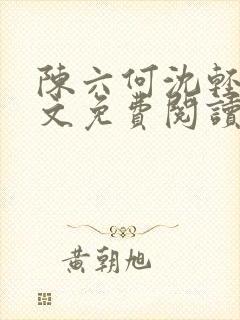 陳六何沈輕
文免費閱讀
黃朝旭